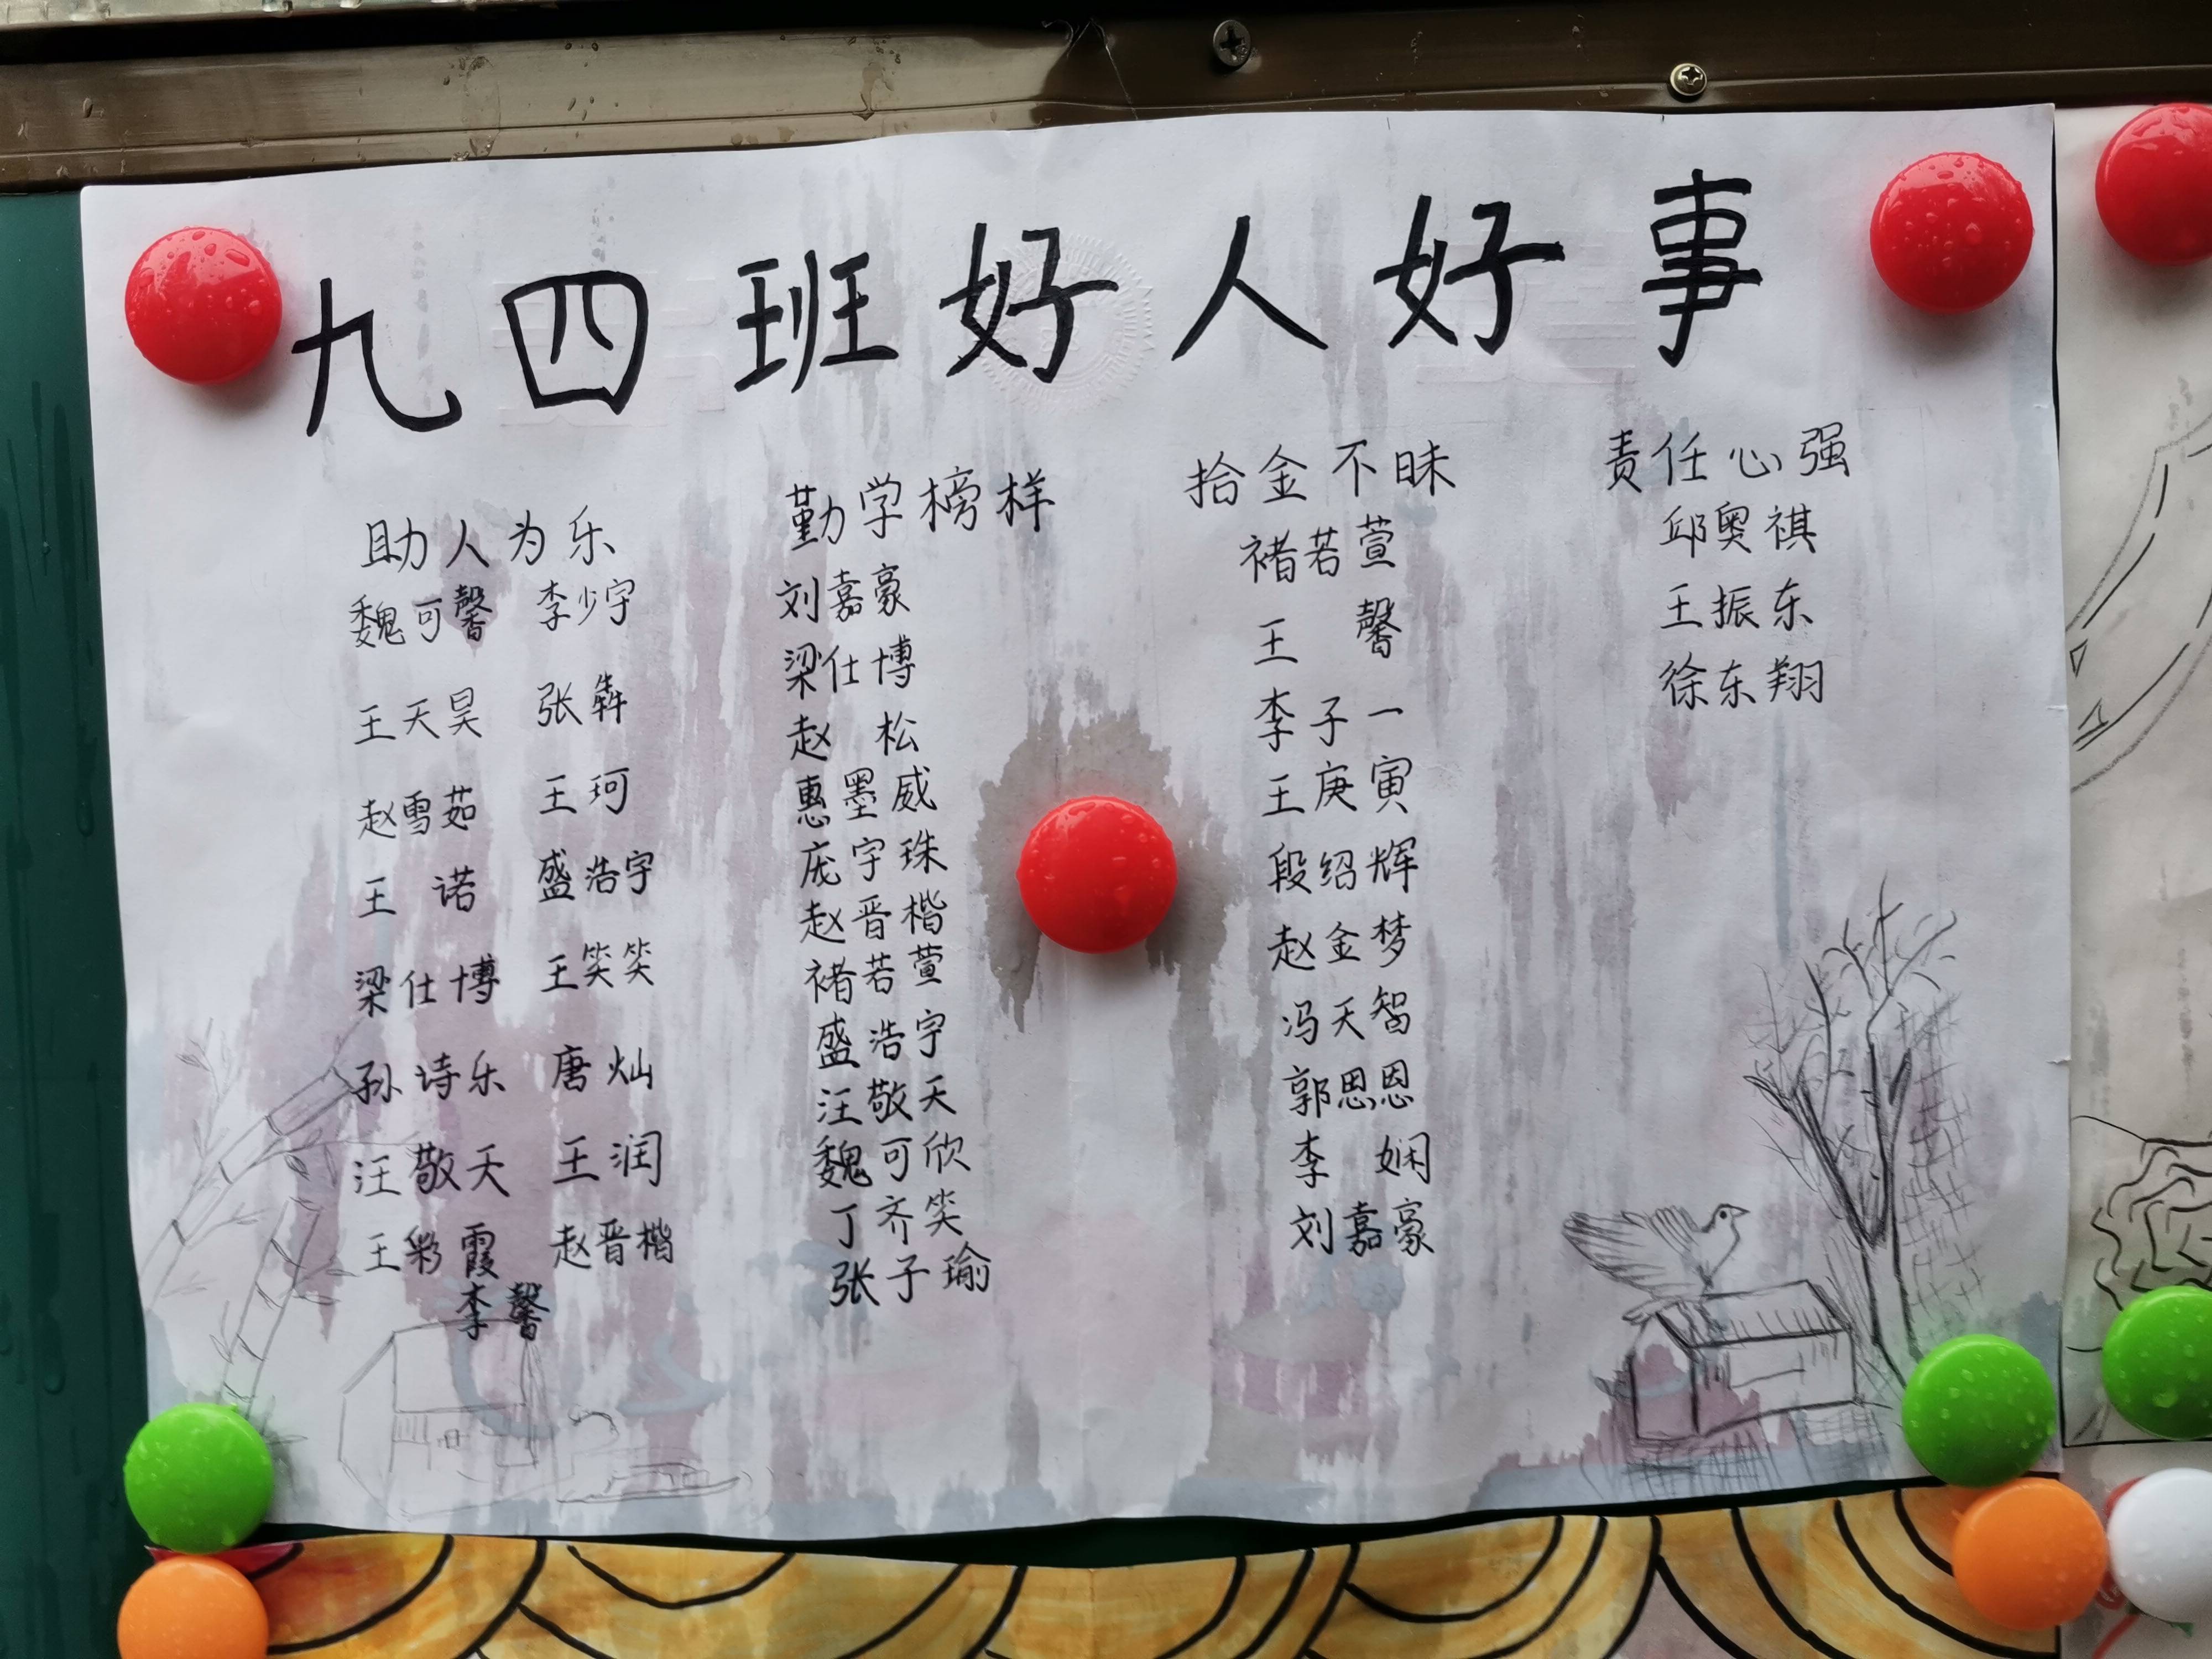 九四班好人好事
助人为乐
魏可馨 李少宇
王天昊 张犇
赵雪茹 王珂
王诺 盛浩宇
梁仕博 王笑笑
孙诗乐 唐灿
汪敬天 王润
王彩霞 赵晋楷
李馨
勤学榜样
刘嘉豪
梁仕博
赵松
惠墨威
庞宇珠
赵晋楷
褚若萱
盛浩宇
汪敬天
魏可欣
丁齐笑
张子瑜
拾金不昧
褚若萱
王馨
李子一
王庚寅
段绍辉
赵金梦
冯天智
郭恩恩
李娴
刘嘉豪
责任心强
邱奥祺
王振东
徐东翔